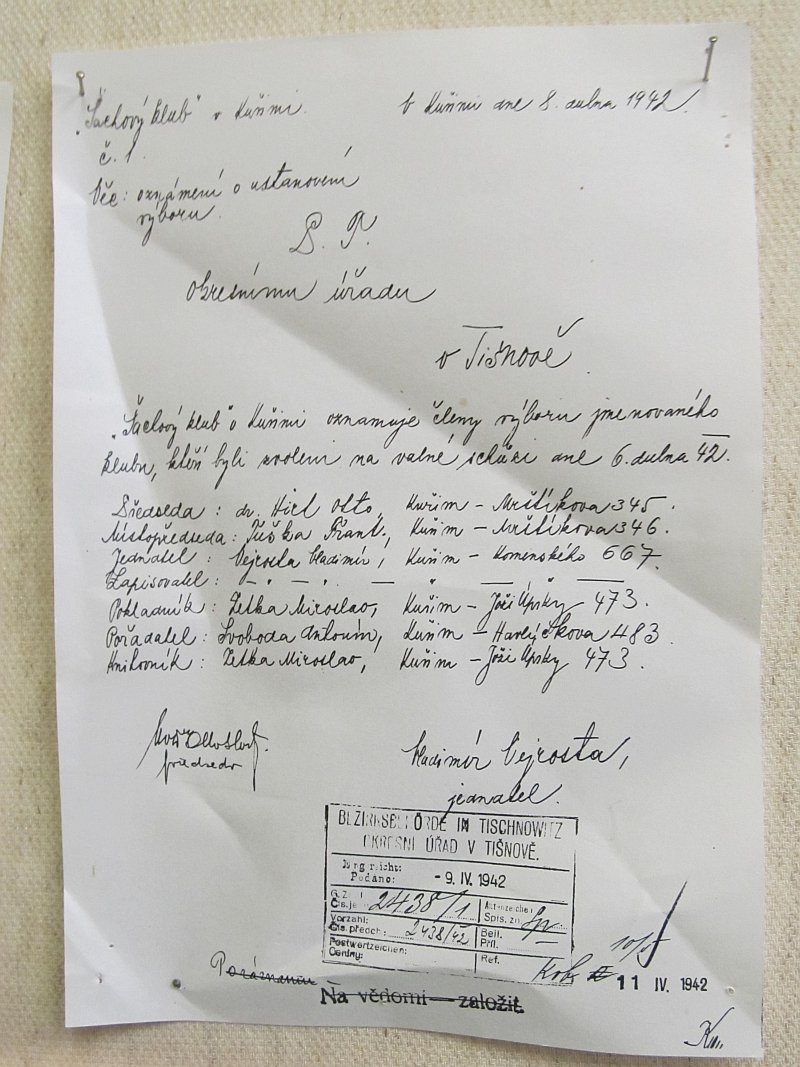 "Šachový klub" v Kuřimi. V Kuřimi dne 8. dubna 1942.
č. 1.
Věc: oznámení o ustanovení
výboru.
P. T.
Okresnímu úřadu
v Tišnově.
"Šachový klub" v Kuřimi oznamuje členy výboru jmenovaného
klubu, kteří byli zvoleni na valné schůzi dne 6. dubna 42.
Předseda: dr. Hirt Otto, Kuřim – Mrštíkova 345.
Místopředseda: Fiška Frant., Kuřim – Mrštíkova 346.
Jednatel: Vejrosta Vladimír, Kuřim – Komenského 667.
Zapisovatel: – " – " – " –
Pokladník: Zetka Miroslav, Kuřim – Joži Úprky 473.
Pořadatel: Svoboda Antonín, Kuřim – Havlíčkova 483.
Knihovník: Zetka Miroslav, Kuřim – Joži Úprky 473.
předseda
Vladimír Vejrosta,
jednatel.
BEZIRKSBEHÖRDE IN TISCHNOWITZ
OKRESNÍ ÚŘAD V TIŠNOVĚ.
Eingereicht:
Podáno: - 9. IV. 1942
G. Z.
Čís. je. 2438/1 Aktenzeichen
Spis. zn.
Vorzahl:
Čís. předch.: 2438/42 Beil.
Příl.
Postwertzeichen:
Cenny: Ref.
11 IV. 1942
Na vědomí — založit.